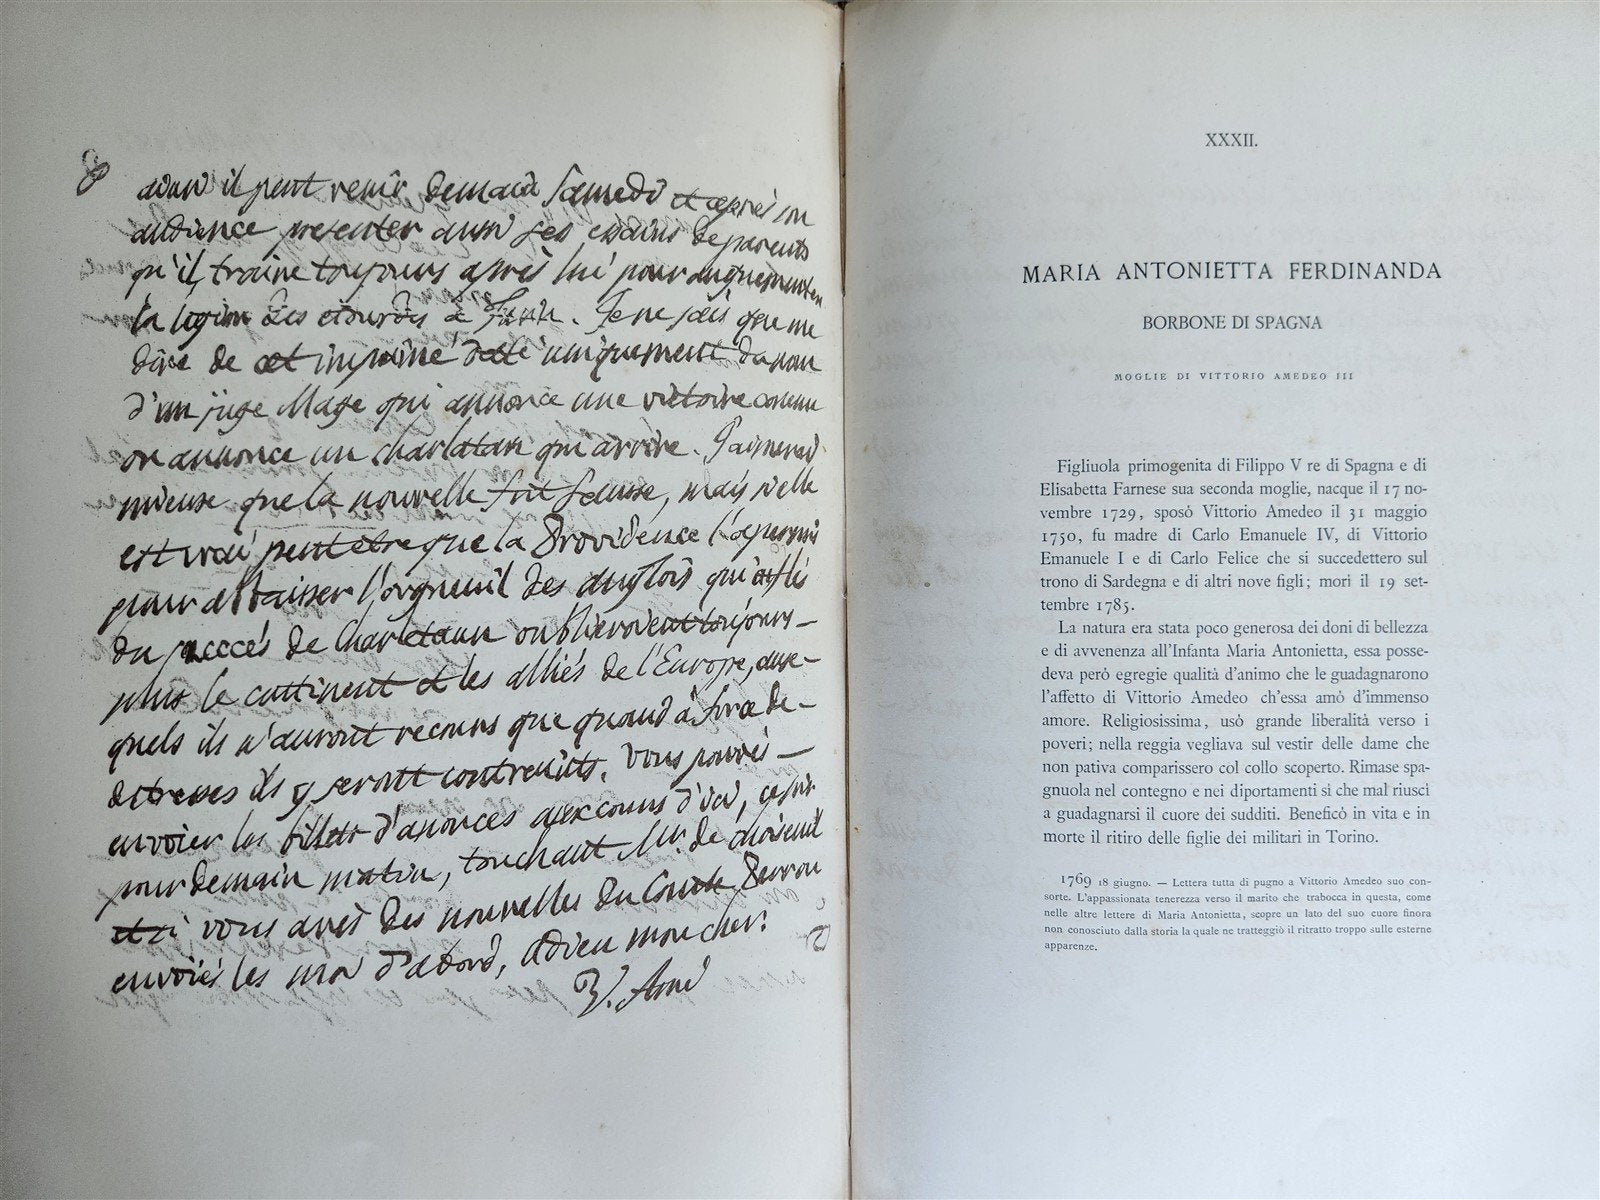 il peut venir demain samedi et après son
audience presenter aussi ses essains de parents
qu'il traine toujours après lui pour augmenter
la légion des etourdis de Je ne sais que me
dire de cet imprimé datté uniquement du nom
d'un juge Mage qui annonce une victoire comme
on annonce un charlatan qui arrive. J'aimerai
mieuse que la nouvelle soit fausse, mais si elle
est vrai peut etre que la Providence l'a permis
pour abbaisser l'orgneuil des anglois qui
du succés de Charletaun oublieroient toujours
plus le cottinent et les alliés de l'Europe, aux-
quels ils n'auront recours que quand à force de
detresses ils y seront contreints. Vous pouvés
envoier les billets d'anonces aux cours d'ici, ce soir
pour demain matin, touchant Mr. de choiseuil
et si vous avés des nouvelles du Comte Perron
envoiés les moi d'abord, adieu mon cher.
V. Amé
XXXII.
MARIA ANTONIETTA FERDINANDA
BORBONE DI SPAGNA
MOGLIE DI VITTORIO AMEDEO III
Figliuola primogenita di Filippo V re di Spagna e di
Elisabetta Farnese sua seconda moglie, nacque il 17 no-
vembre 1729, sposò Vittorio Amedeo il 31 maggio
1750, fu madre di Carlo Emanuele IV, di Vittorio
Emanuele I e di Carlo Felice che si succedettero sul
trono di Sardegna e di altri nove figli; morì il 19 set-
tembre 1785.
La natura era stata poco generosa dei doni di bellezza
e di avvenenza all'Infanta Maria Antonietta, essa posse-
deva però egregie qualità d'animo che le guadagnarono
l'affetto di Vittorio Amedeo ch'essa amò d'immenso
amore. Religiosissima, usò grande liberalità verso i
poveri; nella reggia vegliava sul vestir delle dame che
non pativa comparissero col collo scoperto. Rimase spa-
gnuola nel contegno e nei diportamenti sì che mal riuscì
a guadagnarsi il cuore dei sudditi. Beneficò in vita e in
morte il ritiro delle figlie dei militari in Torino.
1769 18 giugno. — Lettera tutta di pugno a Vittorio Amedeo suo con-
sorte. L'appassionata tenerezza verso il marito che trabocca in questa, come
nelle altre lettere di Maria Antonietta, scopre un lato del suo cuore finora
non conosciuto dalla storia la quale ne tratteggiò il ritratto troppo sulle esterne
apparenze.